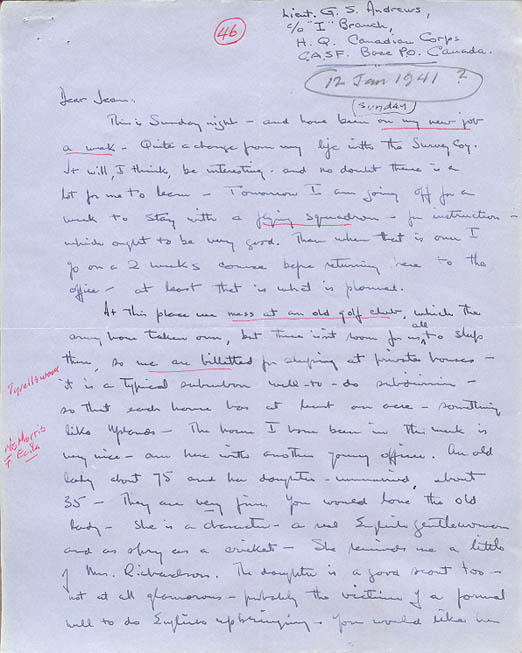 46
Lieut. G. S. Andrews,
c/o "I" Branch,
H. Q. Canadian Corps
C.A.S.F. Base P.O. Canada.
12 Jan 1941 ?
(Sunday)
Dear Jean.
This is Sunday night - and have been on my new job
a week - Quite a change from my life with the Survey Coy.
It will, I think, be interesting - and no doubt there is a
lot for me to learn - Tomorrow I am going off for a
week to stay with a flying squadron - for instruction -
which ought to be very good. Then when that is over I
go on a 2 weeks course before returning here to the
office - at least that is what is planned.
At this place we mess at an old golf club, which the
army have taken over, but there isn't room for us all to sleep
there, so we are billetted for sleeping at private houses -
it is a typical suburban well-to-do subdivision -
so that each house has at least an acre - something
like Uplands - The house I have been in this week is
very nice - am here with another young officer. An old
lady about 75 and her daughter - unmarried, about
35 - They are very fine. You would love the old
lady - She is a character - a real English gentlewoman
and as spry as a cricket - She reminds me a little
of Mrs. Richardson. The daughter is a good scout too -
not at all glamorous - probably the victim of a formal
well to do English upbringing. You would like her
Tyrellswood